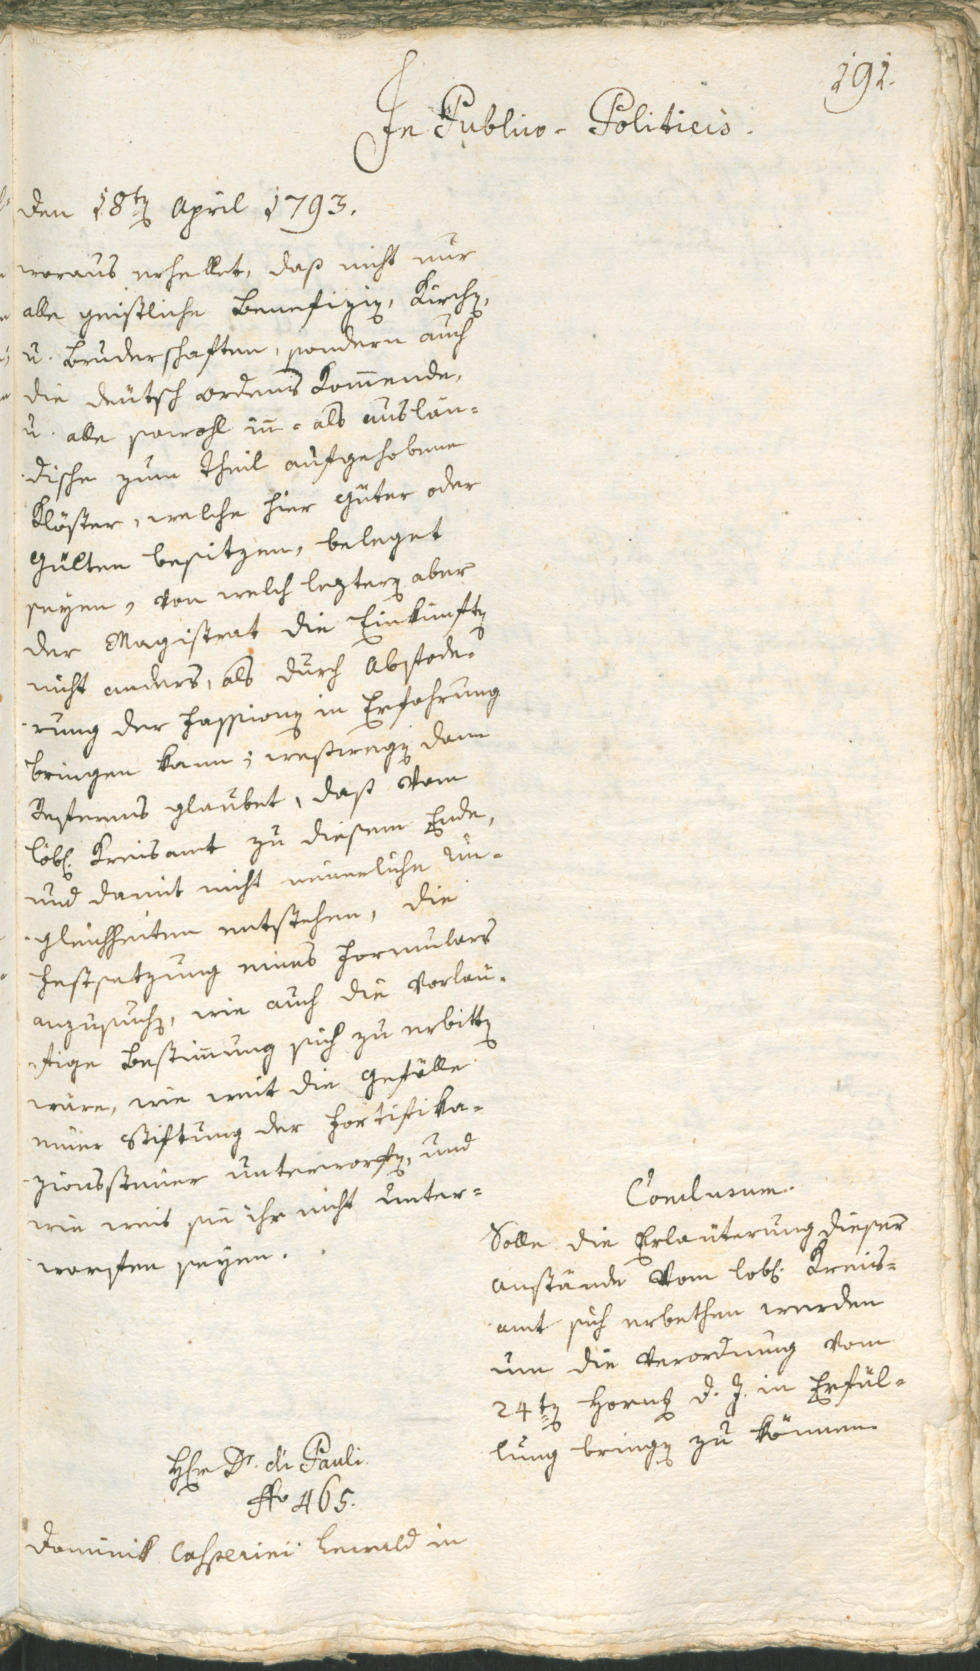 191.
In Publico-Politicis.
den 18ten April 1793.
woraus erhellet, daß nicht nur
alle geistliche Benefizien, Kirchen,
u. Bruderschaften, sondern auch
die deütsch Ordens Kom̅ende,
u. alle sowohl in̅- als auslän-
dische zum theil aufgehobene
Klöster, welche hier Güter oder
Gülten besitzen, beleget
seyen, von welch leztern aber
der Magistrat die Einkünften
nicht anders, als durch Abfode-
rung der Fassionen in Erfahrung
bringen kann; weßwegen dann
Referens glaubet, daß vom
löbl. Kreisamt zu diesem Ende,
und damit nicht neüerliche Un-
gleichheiten entstehen, die
Festsetzung eines Formulars
anzusuchen, wie auch die vorläu-
fige Bestim̅ung sich zu erbitten
wäre, wie weit die Gefälle
einer Stiftung der Fortifika-
zionssteüer unterworfen, und
wie weit sie ihr nicht unter-
worfen seyen.
Conclusum.
Solle die Erläuterung dieser
Anstände vom löbl. Kreis-
amt sich erbethen werden
um die Verordnung vom
24ten Hornung d. J. in Erfül-
lung bringen zu können.
Herr Dr. di Pauli
No 465.
Dominik Casperini Lewald in